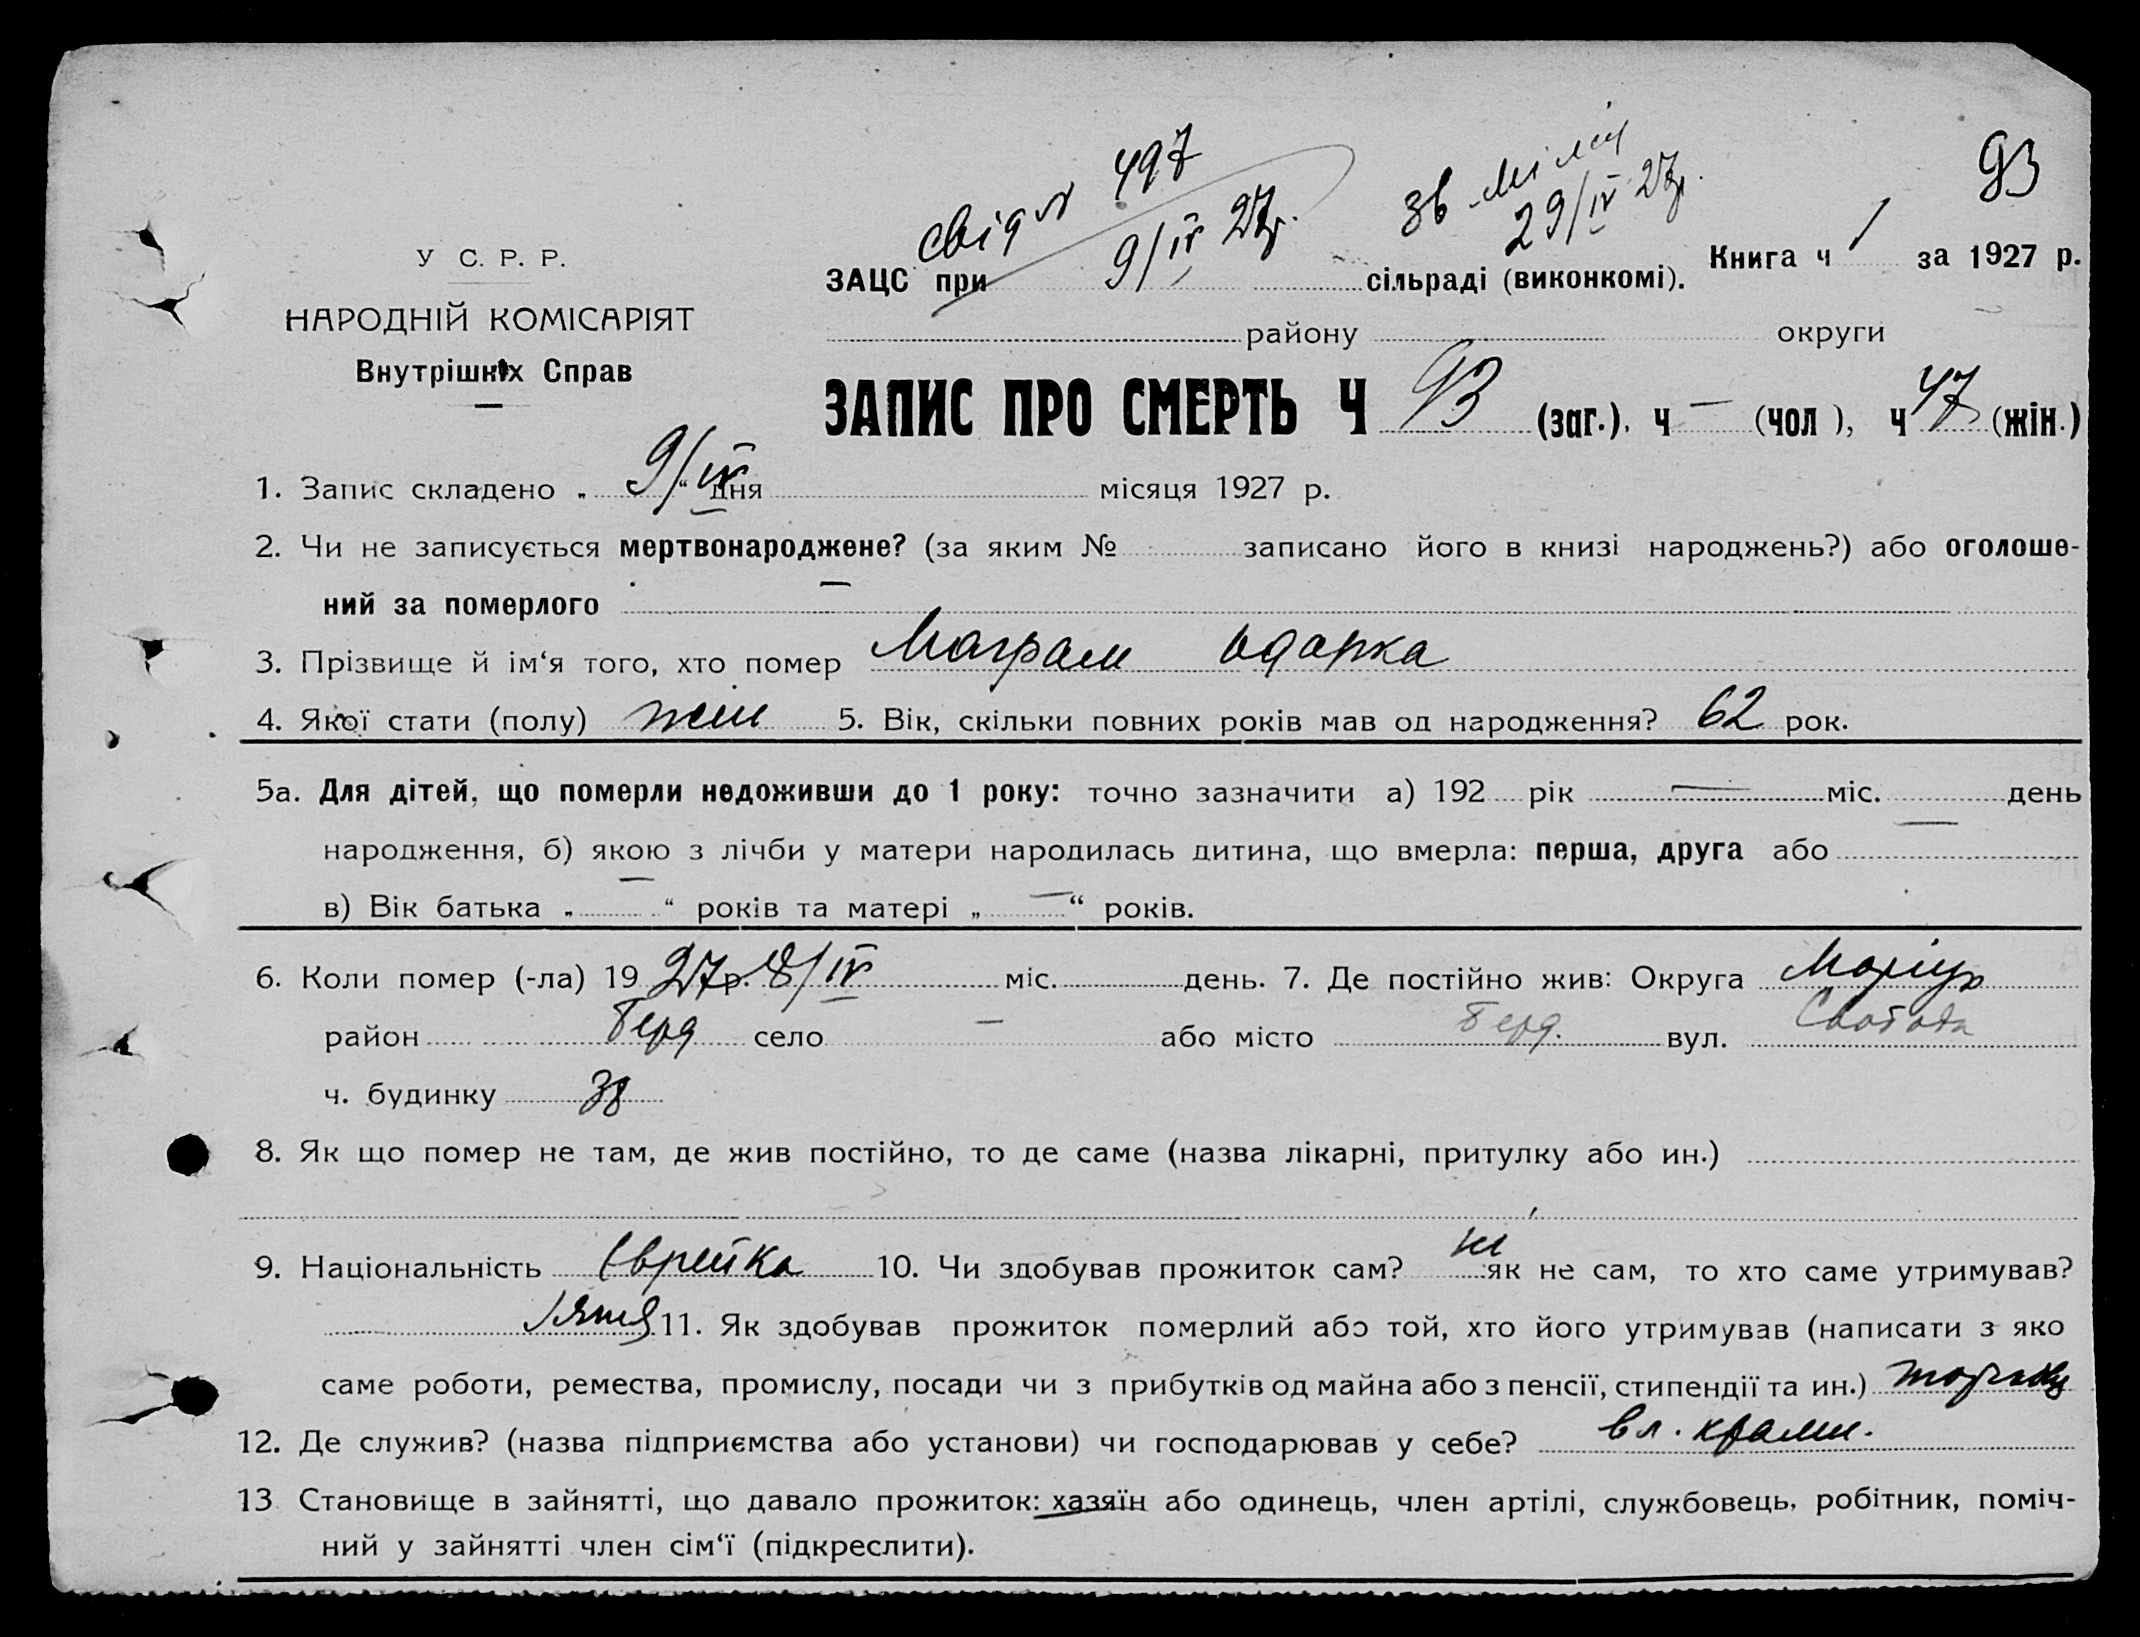 93
свід № 497
9/IV 27р.
зв
29/IV 27р.
У С. Р. Р.
НАРОДНІЙ КОМІСАРІЯТ
Внутрішніх Справ
ЗАЦС при сільраді (виконкомі). Книга ч 1 за 1927 р.
району округи
ЗАПИС ПРО СМЕРТЬ Ч 93 (заг.). ч — (чол ), ч 47 (жін.)
1. Запис складено „ 9/IV “ дня місяця 1927 р.
2. Чи не записується мертвонароджене? (за яким № записано його в книзі народжень?) або оголоше-
ний за померлого —
3. Прізвище й ім‘я того, хто помер Маграм Одарка
4. Якої стати (полу) жін 5. Вік, скільки повних років мав од народження? 62 рок.
5а. Для дітей, що померли недоживши до 1 року: точно зазначити а) 192 рік — міс. день
народження, б) якою з лічби у матери народилась дитина, що вмерла: перша, друга або —
в) Вік батька „ — “ років та матері „ — “ років.
6. Коли помер (-ла) 19 27 р. 8/IV міс. день. 7. Де постійно жив: Округа Маріуп
район Берд село — або місто Берд. вул. Свобода
ч. будинку 38
8. Як що помер не там, де жив постійно, то де саме (назва лікарні, притулку або ин.)
9. Національність Єврейка 10. Чи здобував прожиток сам? ні як не сам, то хто саме утримував?
зятя 11. Як здобував прожиток померлий або той, хто його утримував (написати з яко
саме роботи, ремества, промислу, посади чи з прибутків од майна або з пенсії, стипендії та ин.)
12. Де служив? (назва підприємства або установи) чи господарював у себе? вл. крами.
13 Становище в зайнятті, що давало прожиток: хазяїн або одинець, член артілі, службовець, робітник, поміч-
ний у зайнятті член сім‘ї (підкреслити).